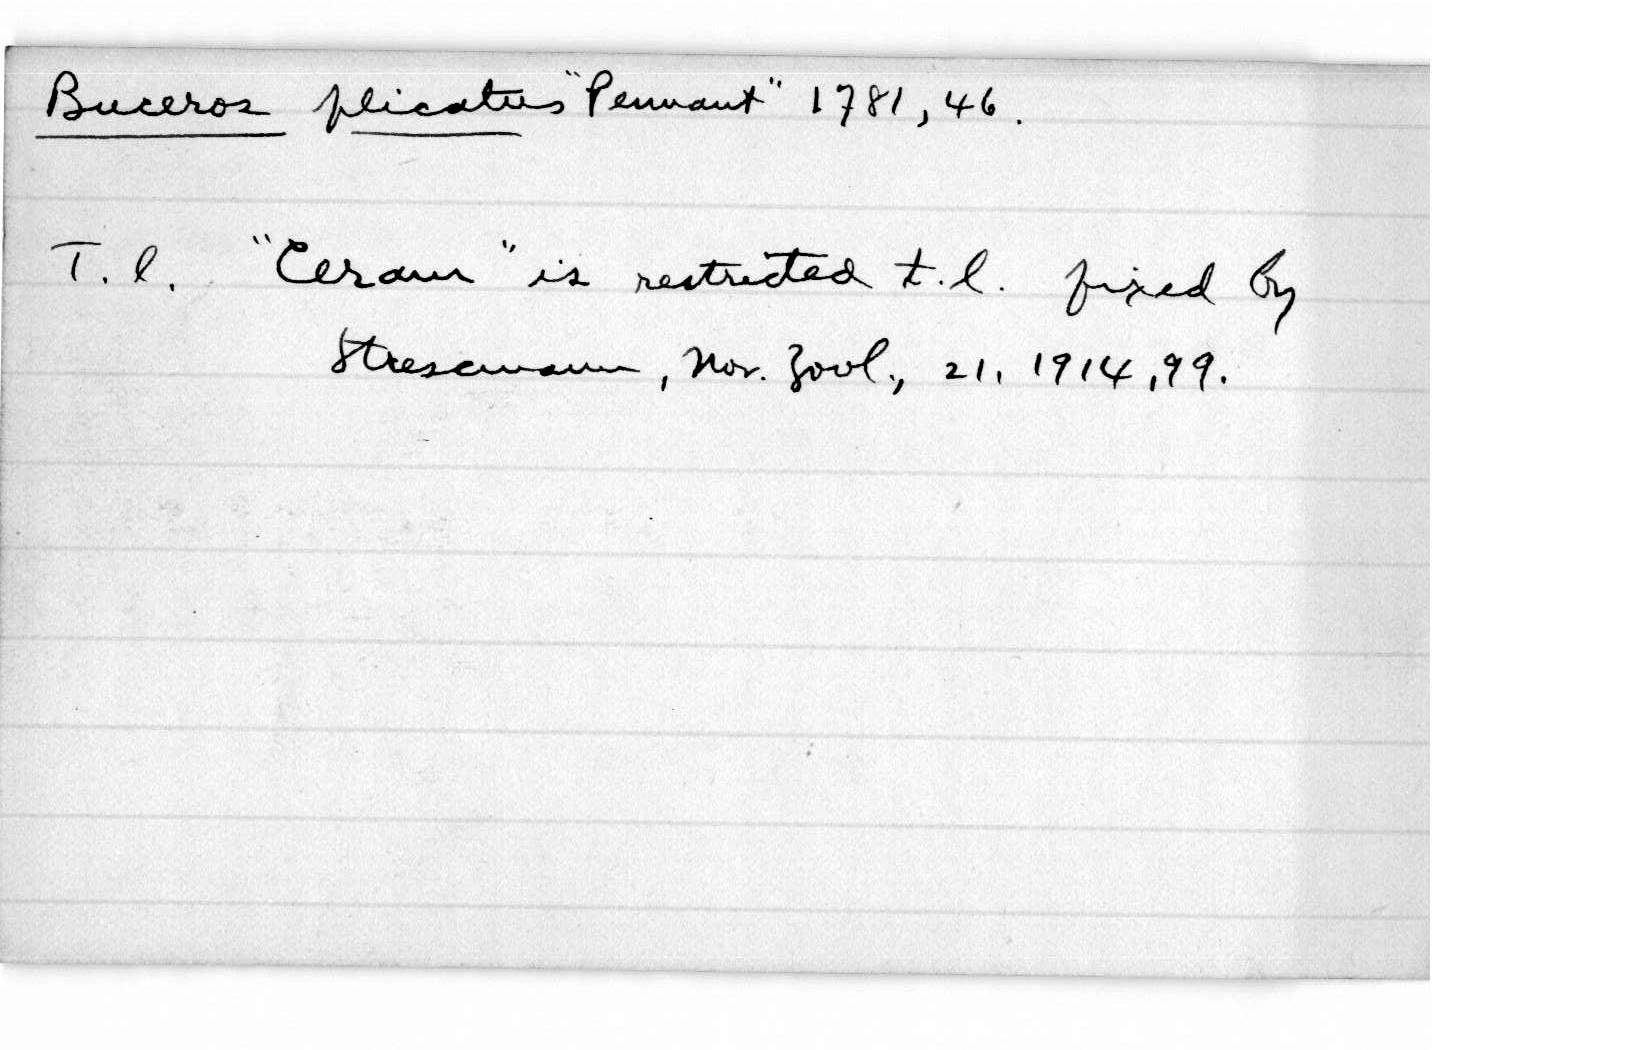 Buceros plicatus "Pennant" 1781, 46.
T. l. "Ceram" is restricted t.l. fixed by
Stresemann, Nov. Zool., 21, 1914, 99.